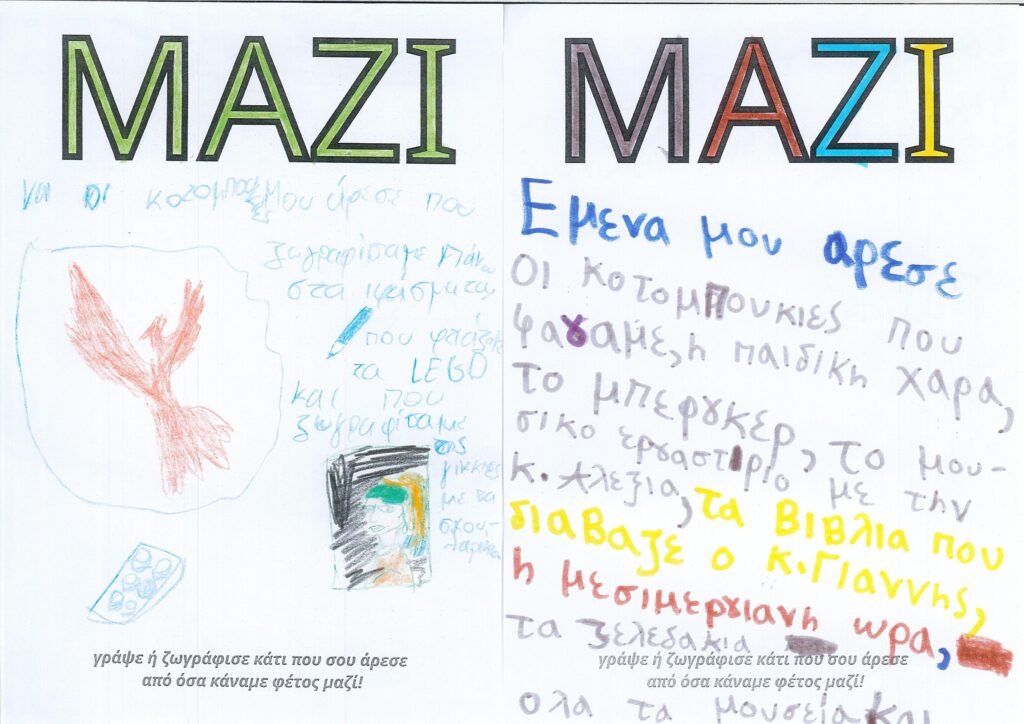 ΜΑΖΙ
μου άρεσε που
ζωγραφίσαμε πάνω
στα
που
τα LEGO
και που
ζωγραφίταμε
της
με τα
γράψε ή ζωγράφισε κάτι που σου άρεσε
από όσα κάναμε φέτος μαζί!
ΜΑΖΙ
Εμενα μου αρεσε
Οι κοτομπουκιες που
φαγαμε, η παιδικη χαρα,
το μπεργκερ, το μου-
σικο εργαστιριο με την
κ. Αλεξια, τα βιβλια που
διαβαζε ο κ. Γιαννης,
η μεσιμεργιανη ωρα,
τα ζελεδακια
γράψε ή ζωγράφισε κάτι που σου άρεσε
από όσα κάναμε φέτος μαζί!
ολα τα μουσεία και